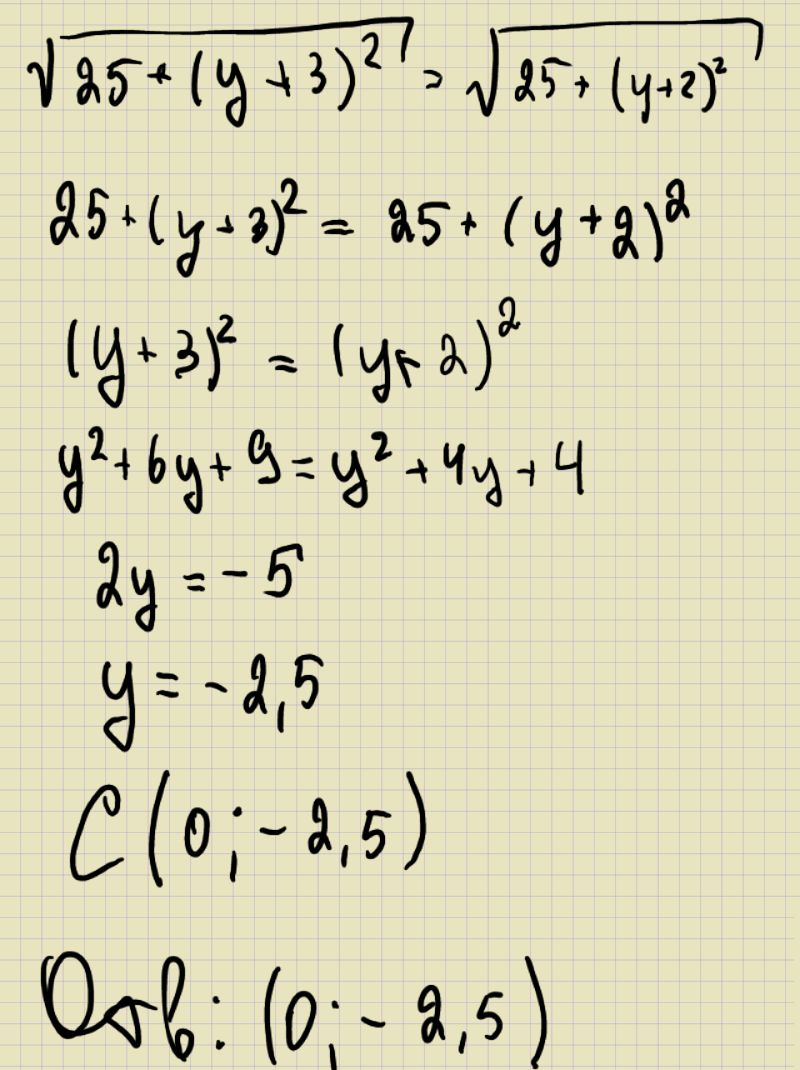 √25+(y+3)² = √25+(y+2)²
25+(y+3)² = 25+(y+2)²
(y+3)² = (y+2)²
y²+6y+9=y²+4y+4
2y=-5
y=-2,5
C(0;-2,5)
Отв: (0;-2,5)